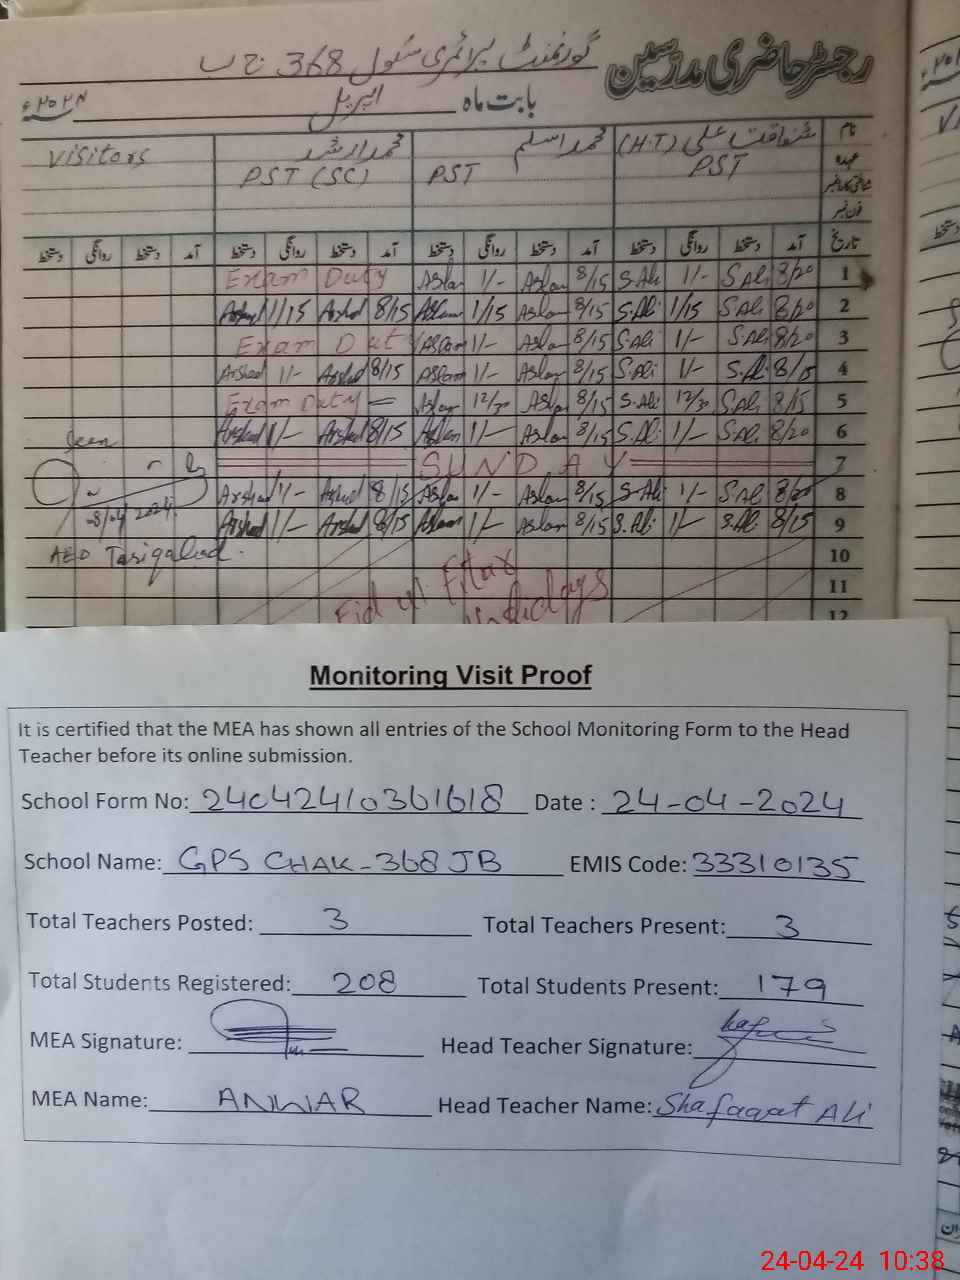 رجسٹر حاضری مدرسین گورنمنٹ پرائمری سکول 368 ج ب
بابت ماہ اپریل ۲۰۲۴ء
نام شفاقت علی (H.T) محمد اسلم محمد ارشد Visitors
عہدہ PST PST PST (SC)
شناختی کارڈ نمبر
فون نمبر
تاریخ آمد دستخط روانگی دستخط آمد دستخط روانگی دستخط آمد دستخط روانگی دستخط آمد دستخط روانگی دستخط
1 8/20 S.Ali 1/- S.Ali 8/15 Aslam 1/- Aslam Exam Duty
2 8/20 S.Ali 1/15 S.Ali 8/15 Aslam 1/15 Aslam 8/15 Arshad 1/15 Arshad
3 8/20 S.Ali 1/- S.Ali 8/15 Aslam 1/- Aslam Exam Duty
4 8/15 S.Ali 1/- S.Ali 8/15 Aslam 1/- Aslam 8/15 Arshad 1/- Arshad
5 8/15 S.Ali 12/30 S.Ali 8/15 Aslam 12/30 Aslam Exam Duty
6 8/20 S.Ali 1/- S.Ali 8/15 Aslam 1/- Aslam 8/15 Arshad 1/- Arshad Seen
7 SUNDAY
8 8/20 S.Ali 1/- S.Ali 8/15 Aslam 1/- Aslam 8/15 Arshad 1/- Arshad 08/04 2024
9 8/15 S.Ali 1/- S.Ali 8/15 Aslam 1/- Aslam 8/15 Arshad 1/- Arshad
10 AEO Tariqabad.
11 Eid ul Fitar
12 Holidays
Monitoring Visit Proof
It is certified that the MEA has shown all entries of the School Monitoring Form to the Head
Teacher before its online submission.
School Form No: 24042410361618 Date : 24-04-2024
School Name: GPS CHAK-368 JB EMIS Code: 33310135
Total Teachers Posted: 3 Total Teachers Present: 3
Total Students Registered: 208 Total Students Present: 179
MEA Signature: Head Teacher Signature:
MEA Name: ANWAR Head Teacher Name: Shafaqat Ali
24-04-24 10:38